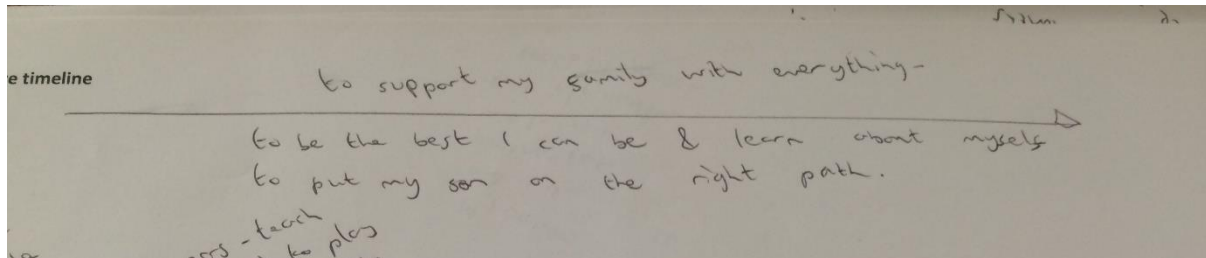 e timeline
to support my family with everything-
to be the best I can be & learn about myself
to put my son on the right path.
- teach
to play